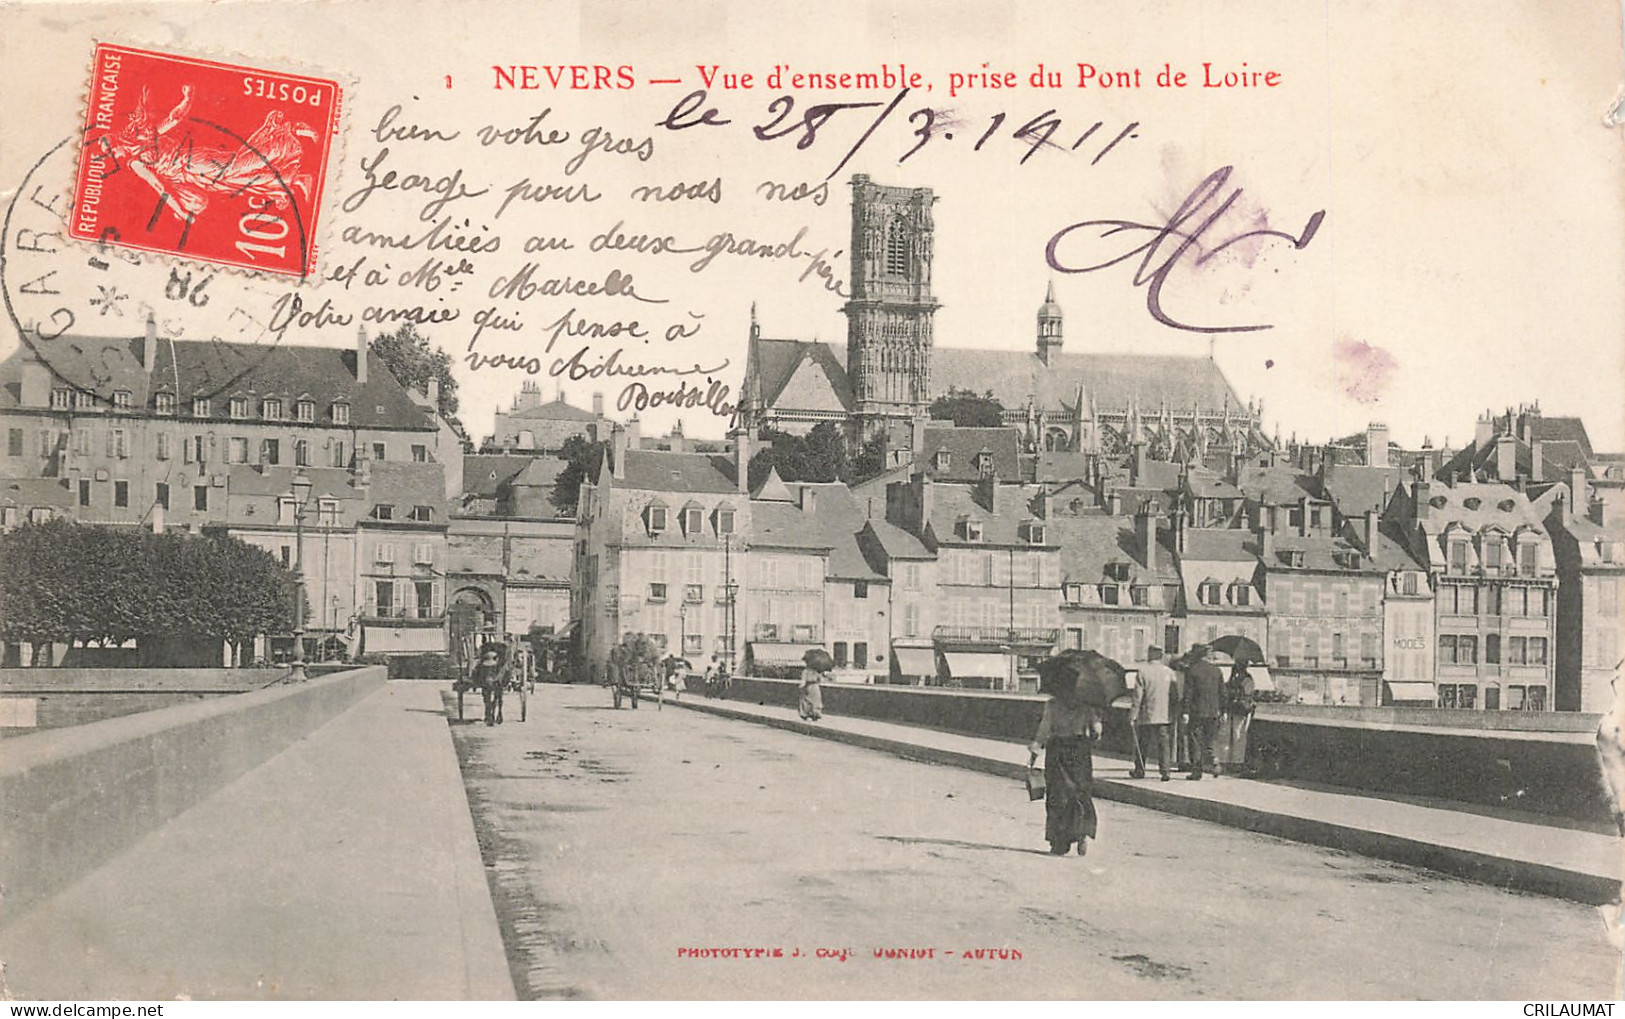 1 NEVERS — Vue d'ensemble, prise du Pont de Loire
le 28/3.1911
bien votre gros
George pour nous nos
amitiées au deux grand-père
et à Melle Marcelle
Votre amie qui pense à
vous Adrienne
REPUBLIQUE FRANÇAISE
POSTES
10c
GARE
28
11
MODES
PHOTOTYPIE J. COQUEUGNIOT - AUTUN
CRILAUMAT